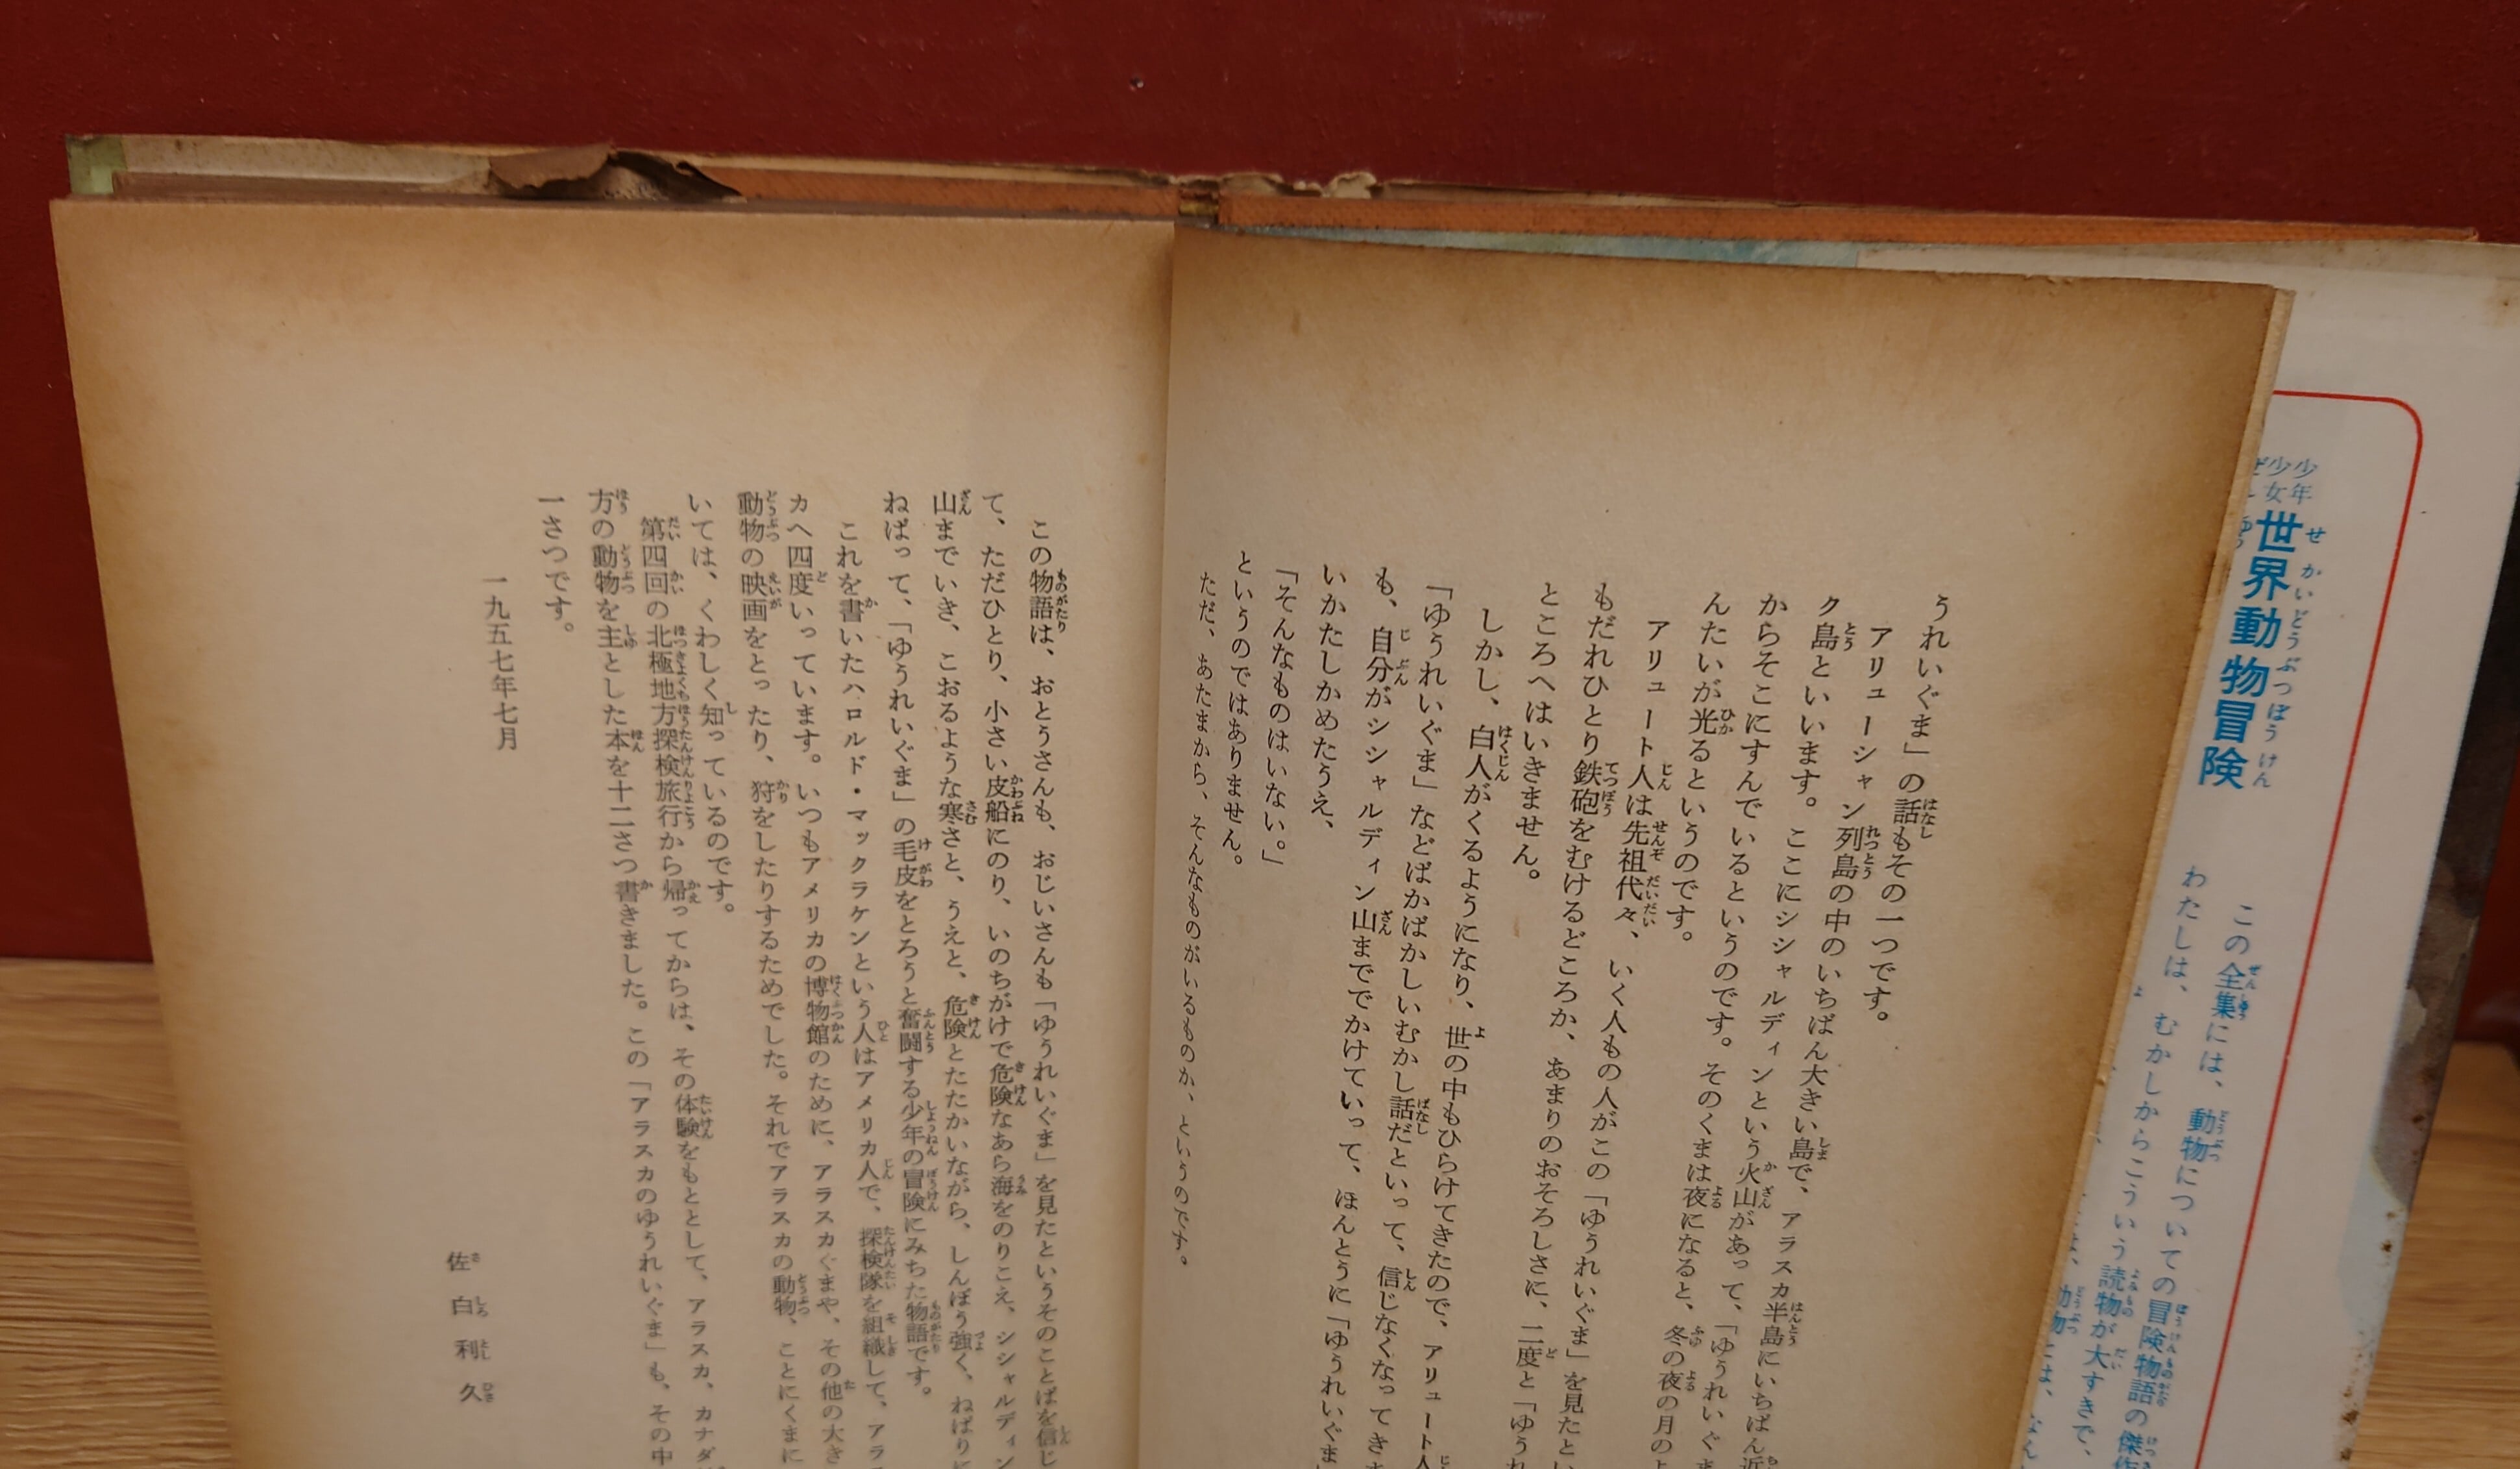 少年
少女
世界動物冒険
この全集には、動物についての冒険物語の傑作
わたしは、むかしからこういう読物が大すきで、
うれいぐま」の話もその一つです。
アリューシャン列島の中のいちばん大きい島で、アラスカ半島にいちばん近
ク島といいます。ここにシシャルディンという火山があって、「ゆうれいぐま
からそこにすんでいるというのです。そのくまは夜になると、冬の夜の月のよ
んたいが光るというのです。
アリュート人は先祖代々、いく人もの人がこの「ゆうれいぐま」を見たとい
もだれひとり鉄砲をむけるどころか、あまりのおそろしさに、二度と「ゆうれ
ところへはいきません。
しかし、白人がくるようになり、世の中もひらけてきたので、アリュート人
「ゆうれいぐま」などばかばかしいむかし話だといって、信じなくなってきま
も、自分がシシャルディン山まででかけていって、ほんとうに「ゆうれいぐま」
いかたしかめたうえ、
「そんなものはいない。」
というのではありません。
ただ、あたまから、そんなものがいるものか、というのです。
この物語は、おとうさんも、おじいさんも「ゆうれいぐま」を見たというそのことばを信じ
て、ただひとり、小さい皮船にのり、いのちがけで危険なあら海をのりこえ、シシャルディン
山までいき、こおるような寒さと、うえと、危険とたたかいながら、しんぼう強く、ねばりに
ねばって、「ゆうれいぐま」の毛皮をとろうと奮闘する少年の冒険にみちた物語です。
これを書いたハロルド・マックラケンという人はアメリカ人で、探検隊を組織して、アラス
カへ四度いっています。いつもアメリカの博物館のために、アラスカぐまや、その他の大き
動物の映画をとったり、狩をしたりするためでした。それでアラスカの動物、ことにくまに
いては、くわしく知っているのです。
第四回の北極地方探検旅行から帰ってからは、その体験をもととして、アラスカ、カナダ
方の動物を主とした本を十二さつ書きました。この「アラスカのゆうれいぐま」も、その中
一さつです。
一九五七年七月
佐白利久